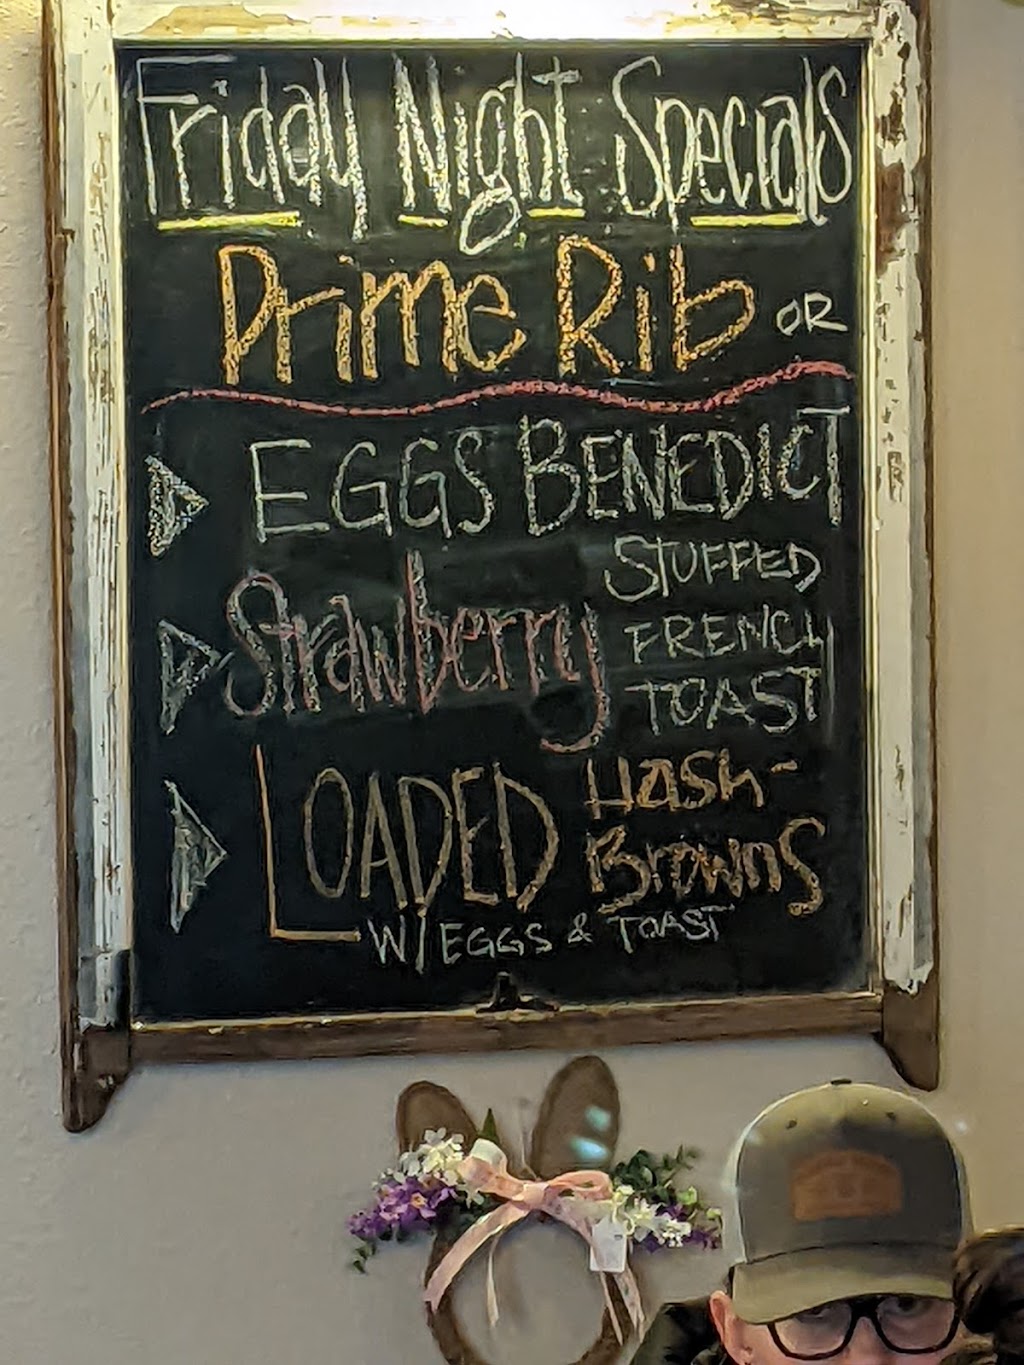 Friday Night Specials
Prime Rib OR
EGGS BENEDICT
Strawberry STUFFED
FRENCH
TOAST
LOADED Hash-
Browns
W/ EGGS & TOAST